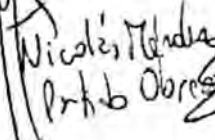 Nicolás Méndez
Partido Obrero